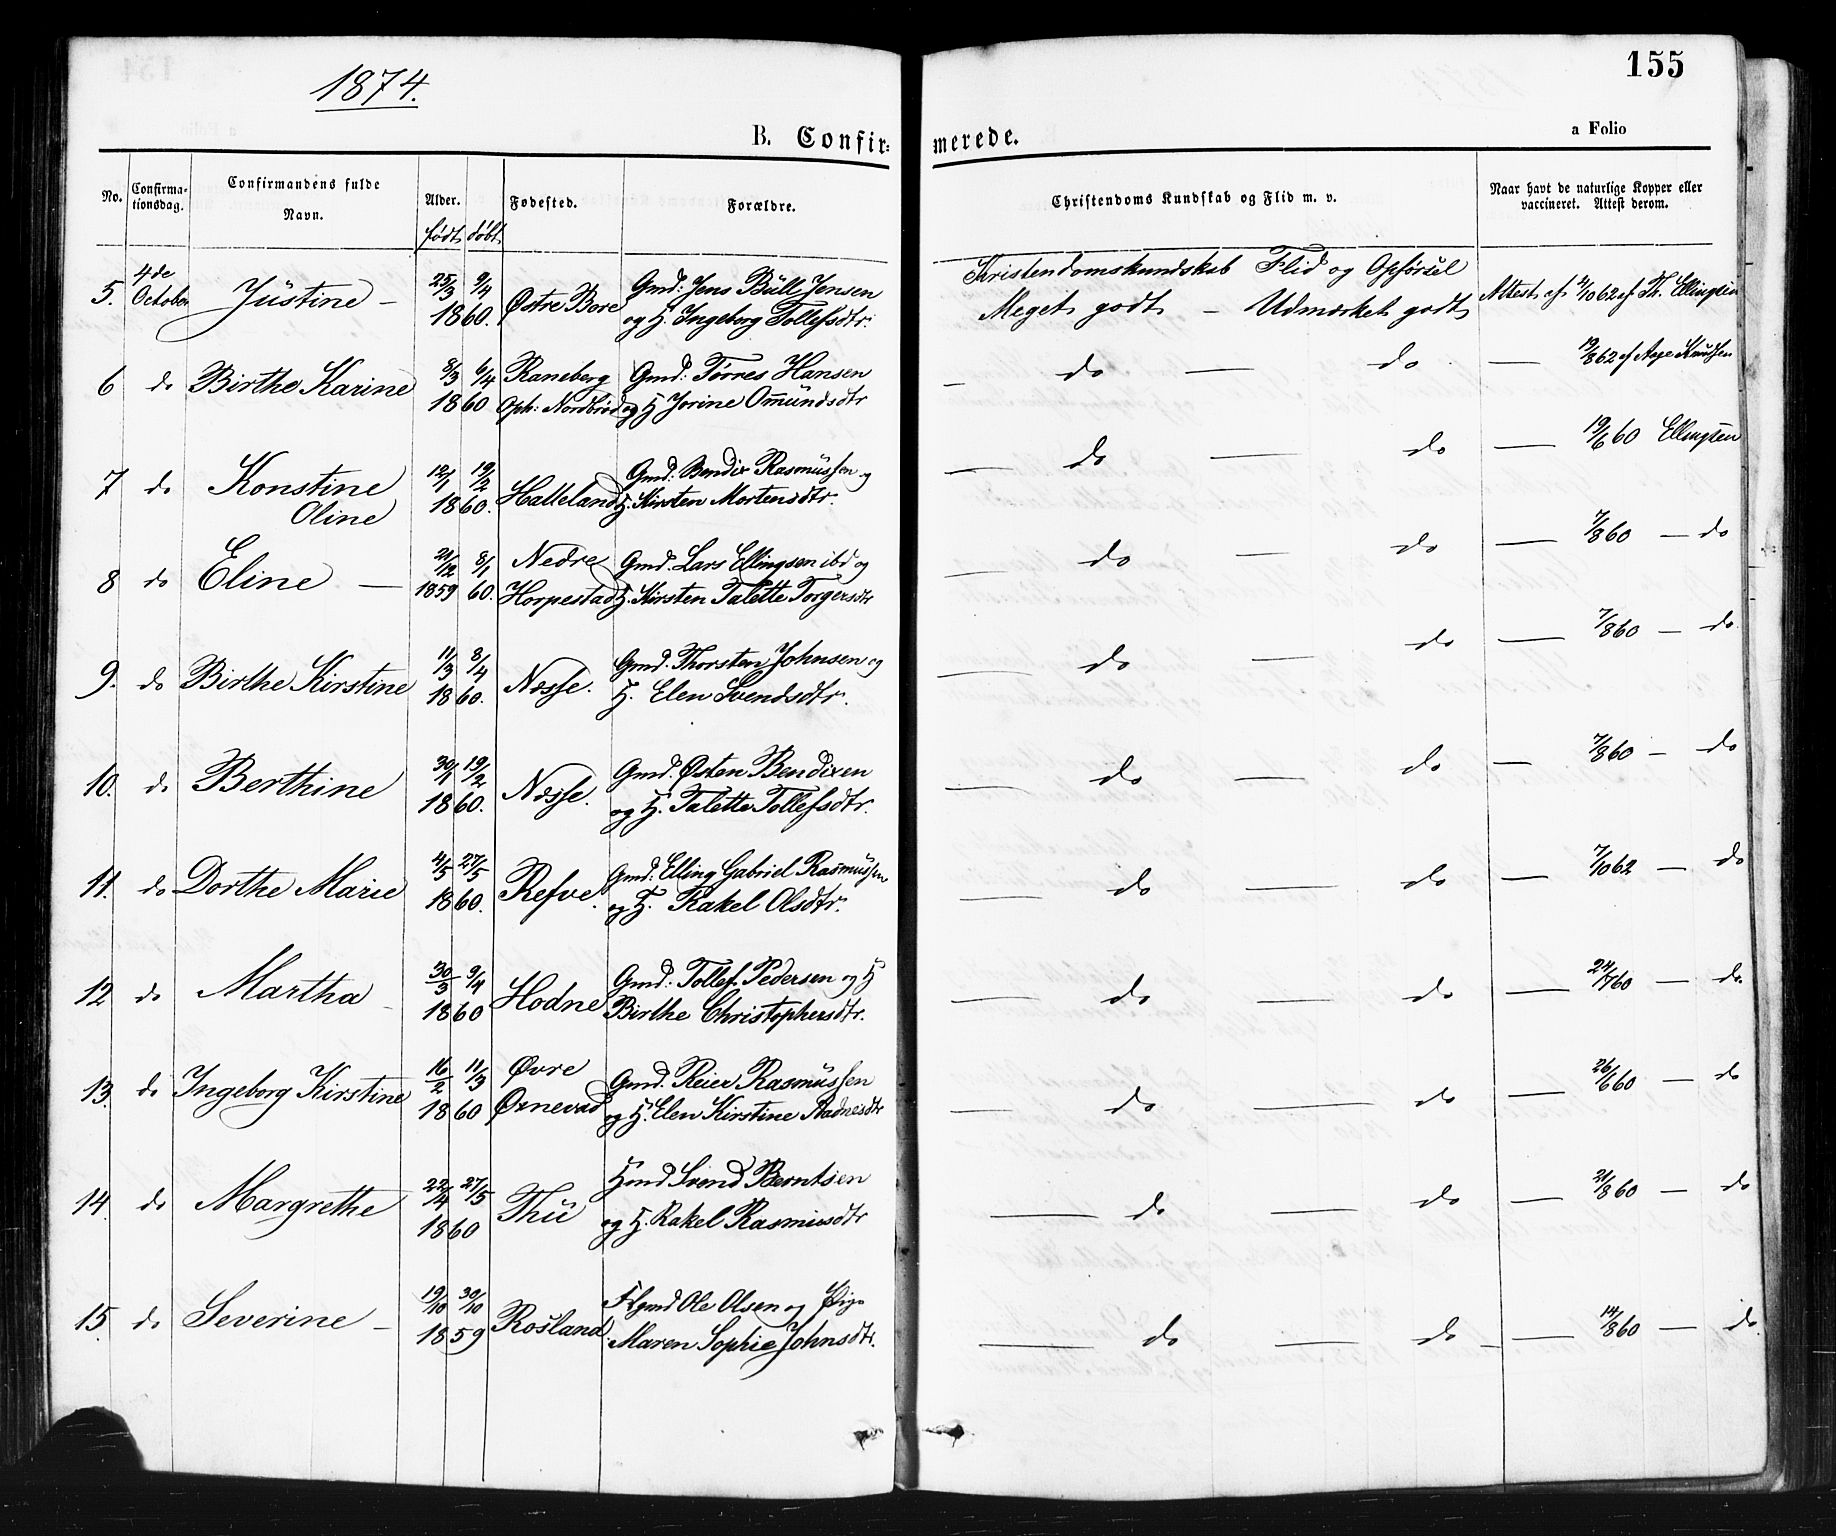 1874.
155
B. Confir=
merede.
a Folio
No.
Confirma-
tionsdag.
Confirmandens fulde
Navn.
Alder.
født döbt
Fødested.
Forældre.
Christendoms Kundskab og Flid m. v.
Naar havt de naturlige Kopper eller
vaccineret. Attest derom.
Kristendomskundskab Flid og Opførsel
5. 4de October Jüstine – 25/3 9/4 1860. Østre Bore Gmd: Jens Büll Jensen
og H. Ingeborg Tollefsdtr.
Meget godt – Udmærket godt Attest af /10 62 af Th. Ellingsen
6 do Birthe Karine 8/3 6/4 1860 Raneberg Gmd: Tørres Hansen
Oph: Nordbrød og H Jorine Omündsdtr
– do — do — 19/8 62 af Aage Knudsen
7 do Konstine 12/1 19/2 Gmd: Bendix Rasmüssen og
Oline 1860. Halleland H. Kirsten Mortensdtr.
— do — do — 19/6 60 Ellingsen
8 do Eline — 21/12 8/1 Nedre Gmd. Lars Ellingsen ibd og
1859 60. Horpestad H. Kirsten Talette Torgersdtr
— do — do — 7/8 60 — do
9. do Birthe Kirstine 11/3 8/4 1860. Næsse. Gmd. Thorsten Johnsen og
H. Elen Svendsdtr.
— do — do — 7/8 60 — do
10. do Berthine 30/1 19/2 1860. Næsse. Gmd. Østen Bendixen
og H. Talette Tollefsdtr.
— do — do — 7/8 60 — do
11. do Dorthe Marie 4/5 27/5 1860. Refve. Gmd: Elling Gabriel Rasmüssen
og H. Rakel Olsdtr.
— do — do — 7/10 62 — do
12 do Martha – 30/3 9/4 1860 Hodne Gmd: Tollef Pedersen og H
Birthe Christophersdtr.
— do — do — 24/7 60 — do.
13. do Ingeborg Kirstine 16/2 11/3 Øvre Gmd. Reier Rasmüssen
1860 Ornevad og H. Elen Kirstine Aadnesdtr
— do — do — 26/6 60 — do
14. do Margrethe 22/4 27/5 1860 Thü Hmd Svend Berntsen
og H. Rakel Rasmusdtr
— do — do — 21/8 60 — do
15. do Severine – 19/10 30/10 1859 Rosland Flgmd Ole Olsen og Pige
Maren Sophie Johnsdtr.
— do — do — 14/8 60 — do